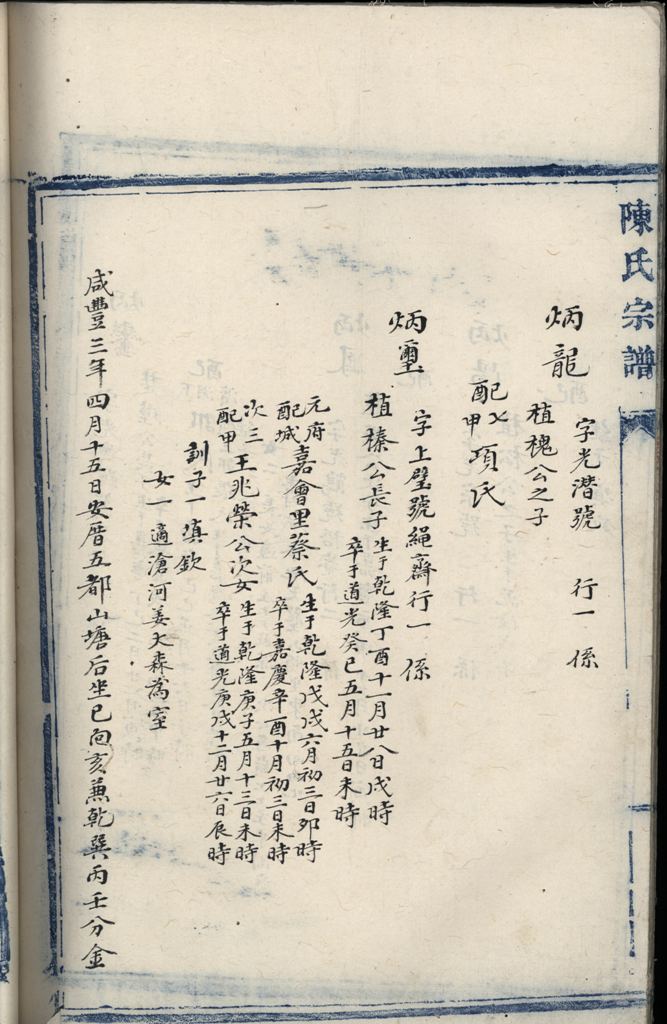 陳氏宗譜
炳龍
字光潛號　行一　係
植槐公之子
配甲項氏
炳璽
字上璧號繩齋行一　係
植榛公長子
生于乾隆丁酉十一月廿八日戌時
卒于道光癸巳五月十五日未時
元配府城嘉會里蔡氏
生于乾隆戊戌六月初三日卯時
卒于嘉慶辛酉十月初三日未時
次配三甲王兆榮公次女
生于乾隆庚子五月十三日未時
卒于道光庚戌十二月廿六日辰時
訓子一　填欽
女一　適滄河姜大森為室
咸豐三年四月十五日安厝五都山塘后坐巳向亥兼乾巽丙壬分金